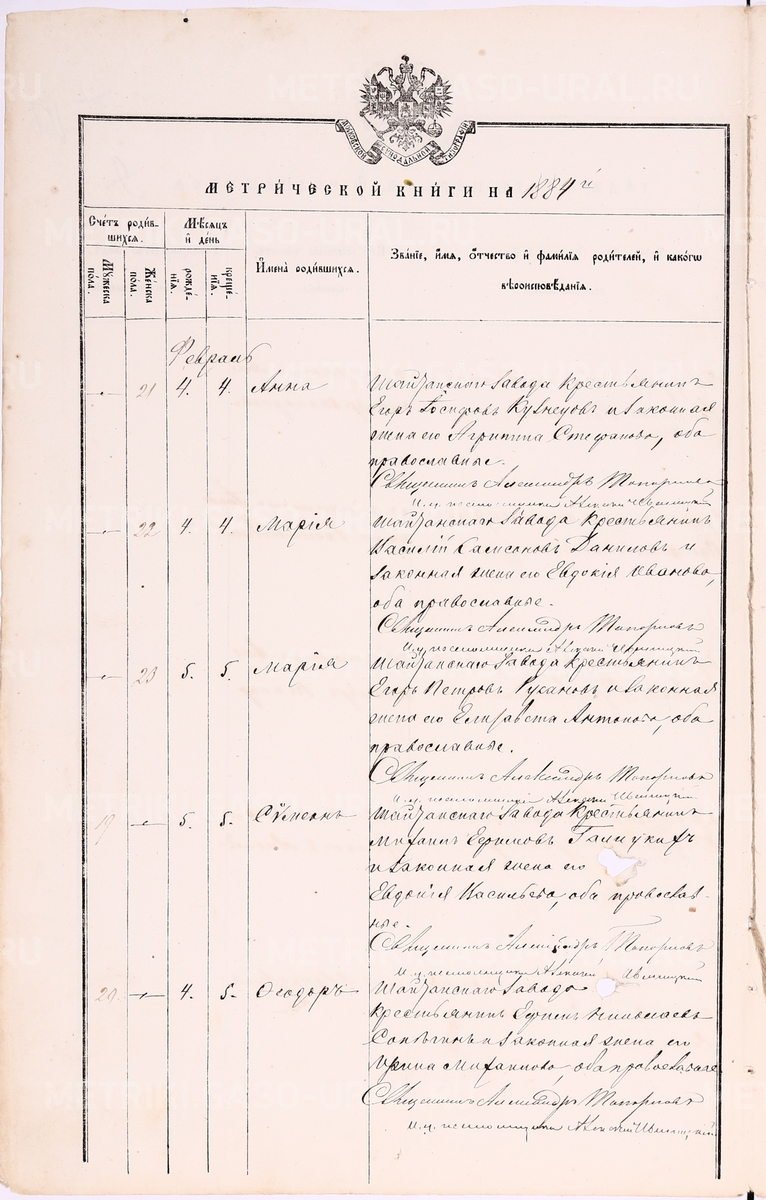 МОСКОВСКОЙ СѴНОДАЛЬНОЙ ТИПОГРАФІИ
МЕТРИ́ЧЕСКОЙ КНИ́ГИ НА 1884 й
Сче́тъ роди́в-
шихся.
Мѣсяцъ
и҆ де́нь
И҆мена̀ роди́вшихся.
Зва́нїе, и҆́мя, ѻ҆́тчество и҆ фами́лїя роди́телей, и҆ како́гѡ
вѣроисповѣ́данїя.
Мꙋ́жеска
по́ла.
Же́нска
по́ла.
рожде́-
нїя.
креще́-
нїя.
Февраль
21 4. 4. Анна
Шайтанскаго завода крестьянинъ
Егоръ Іосифовъ Кузнецовъ и законная
жена его Агрипина Стефанова, оба
православные.
Священникъ Александръ Топорковъ
И. д. псаломщика Алексій
22 4. 4. Марія
Шайтанскаго завода крестьянинъ
Василій Самсоновъ Даниловъ и
законная жена его Евдокія Иванова,
оба православные.
Священникъ Александръ Топорковъ
И. д. псаломщика Алексій
23 5. 5. Марія
Шайтанскаго завода крестьянинъ
Егоръ Петровъ Русановъ и законная
жена его Елизавета Антонова, оба
православные.
Священникъ Александръ Топорковъ
И. д. псаломщика Алексій
19 5. 5. Сѵмеонъ
Шайтанскаго завода крестьянинъ
Михаилъ Ефимовъ
и законная жена его
Евдокія Васильева, оба православ-
ные.
Священникъ Александръ Топорковъ
И. д. псаломщика Алексій
20 4. 5. Ѳеодоръ
Шайтанскаго завода
крестьянинъ Ефимъ Николаевъ
Сопѣгинъ и законная жена его
Ирина Михаилова, оба православные
Священникъ Александръ Топорковъ
И. д. псаломщика Алексій